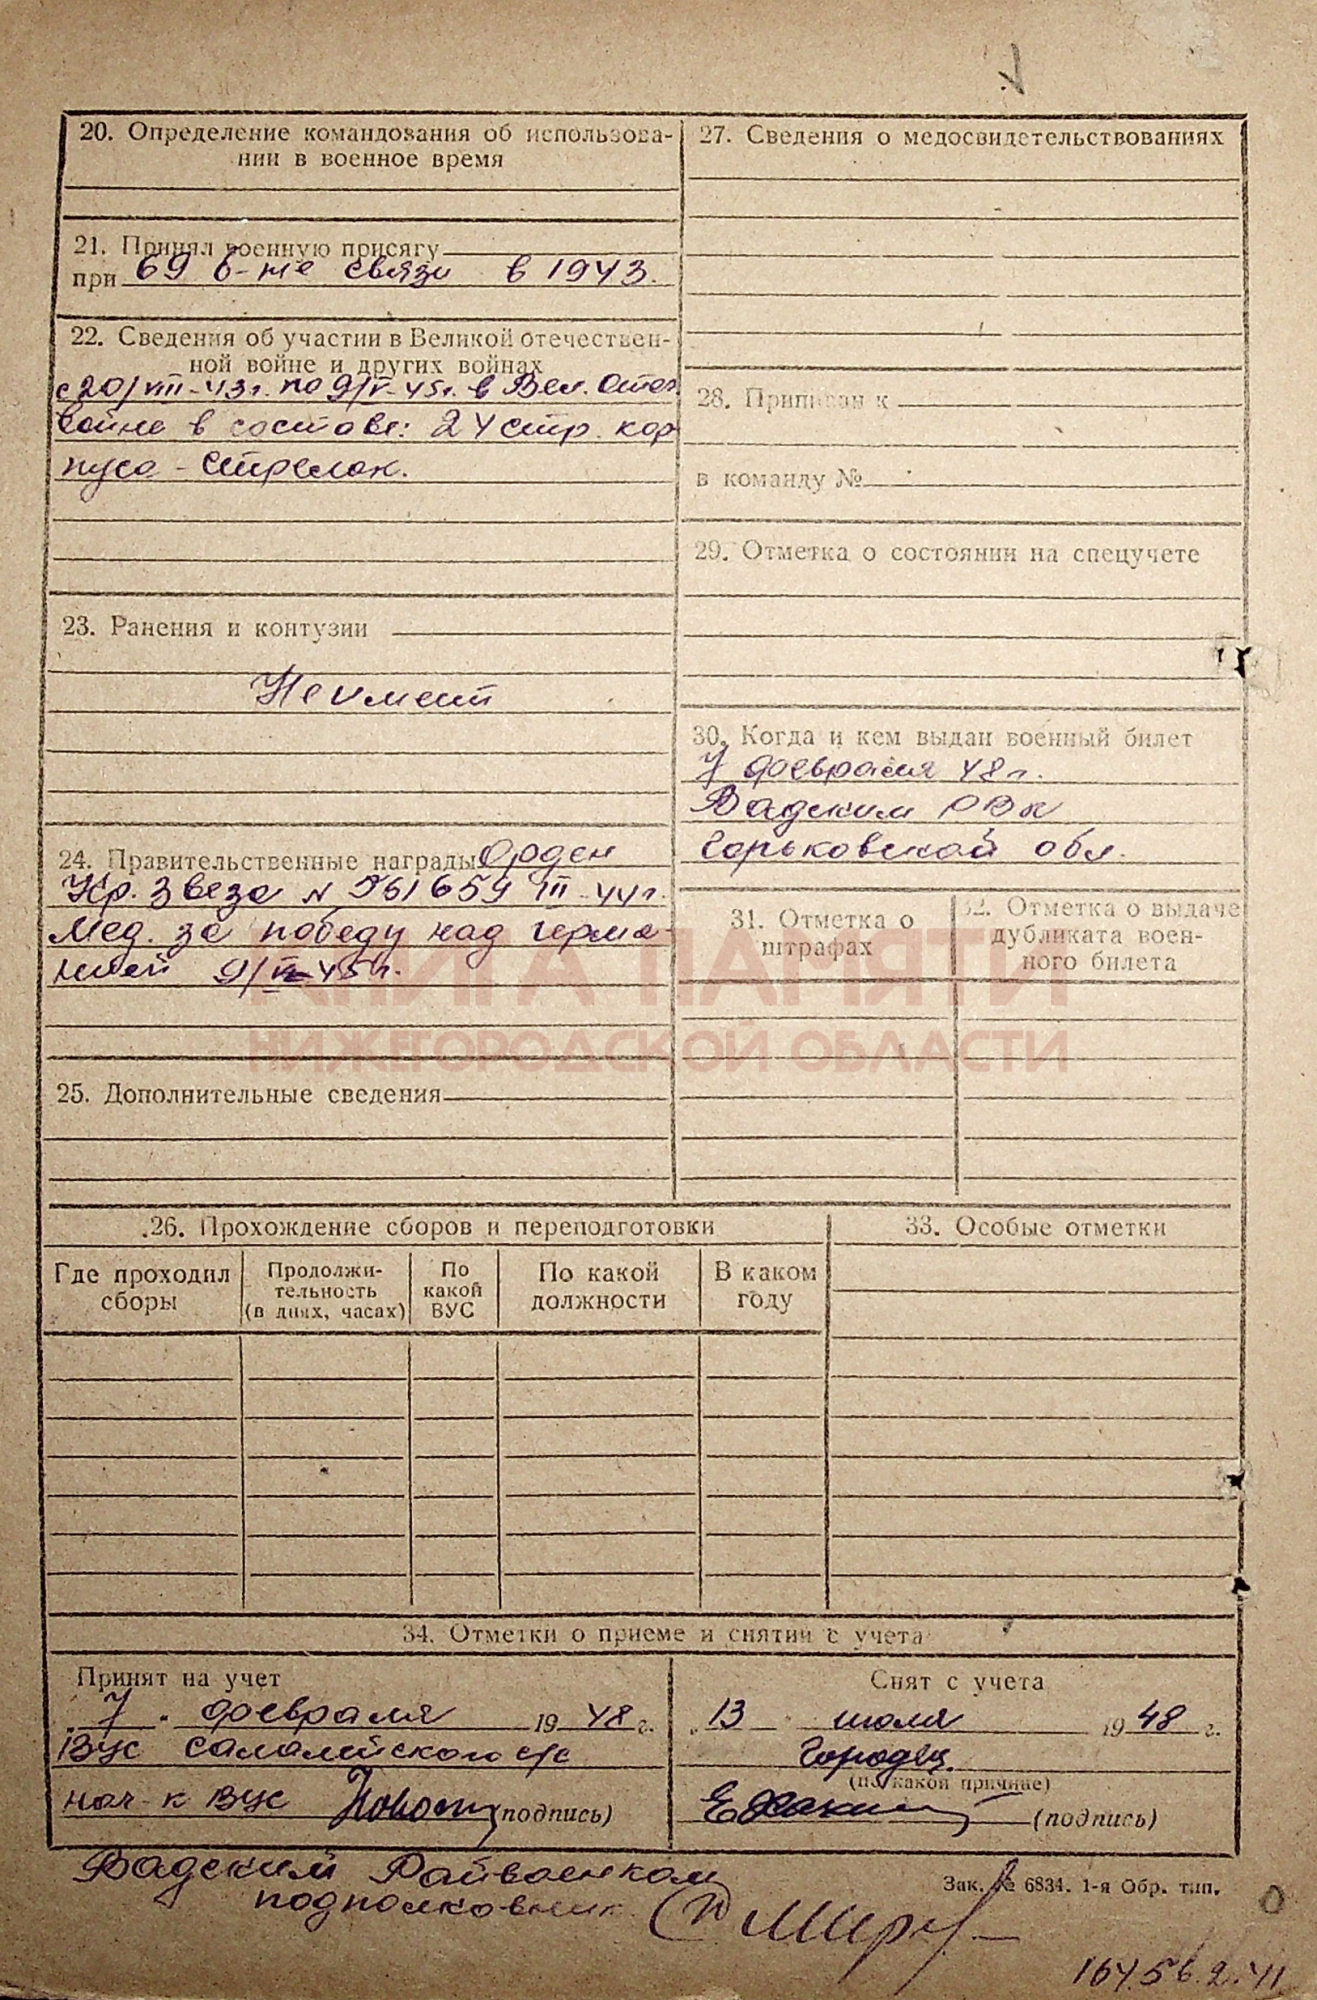 20. Определение командования об использова-
нии в военное время
21. Принял военную присягу
при 69 б-не связи в 1943.
22. Сведения об участии в Великой отечествен-
ной войне и других войнах
с 20/VIII-43г. по 9/V-45г. в Вел. Отеч.
войне в составе: 24 стр. кор
пуса - Стрелок.
23. Ранения и контузии
Не имеет
24. Правительственные награды Орден
Кр. Звезда N 961659 III-44г.
Мед. за победу над Герма-
нией 9/V-45г.
25. Дополнительные сведения
27. Сведения о медосвидетельствованиях
28. Приписан к
в команду №
29. Отметка о состоянии на спецучете
30. Когда и кем выдан военный билет
7 февраля 48 г.
Вадским РВК
Горьковской обл.
31. Отметка о
штрафах
32. Отметка о выдаче
дубликата воен-
ного билета
КНИГА ПАМЯТИ
НИЖЕГОРОДСКОЙ ОБЛАСТИ
26. Прохождение сборов и переподготовки
Где проходил
сборы
Продолжи-
тельность
(в днях, часах)
По
какой
ВУС
По какой
должности
В каком
году
33. Особые отметки
34. Отметки о приеме и снятии с учета
Принят на учет
"7" февраля 1948 г.
ВУС Салалейского с/с
нач-к ВУС (подпись)
Снят с учета
"13" июля 1948 г.
Городец.
(по какой причине)
(подпись)
Вадским Райвоенком
подполковник
Зак. № 6834. 1-я Обр. тип.